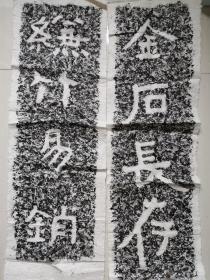 金石長存
縑竹易銷